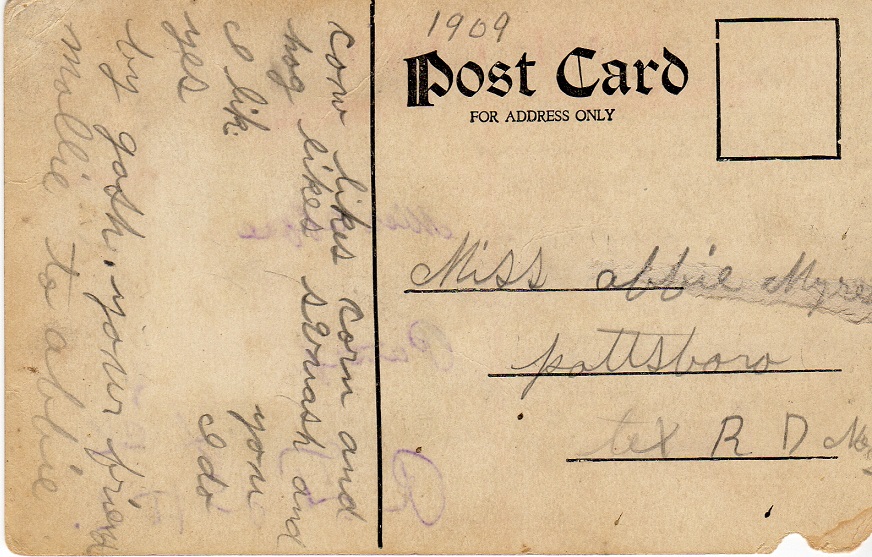 cow likes corn and
hog likes squash and
I lik. you
yes I do
by gosh. your friend
mollie to abbie
1909
Post Card
FOR ADDRESS ONLY
Miss abbie Myres
pottsboro
tex R D No